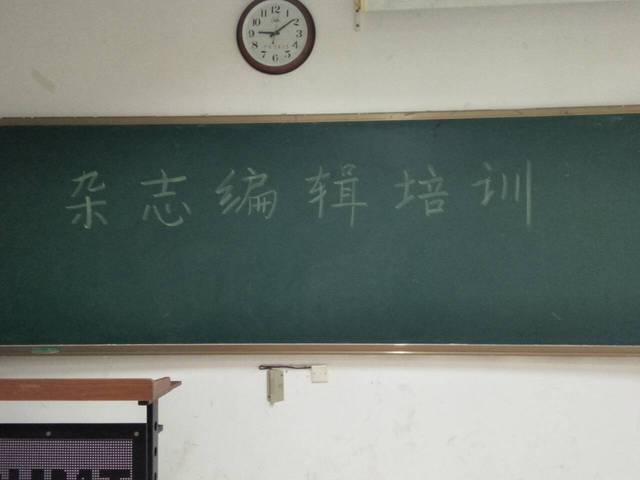 杂志编辑培训
12
1
2
3
4
5
6
7
8
9
10
11